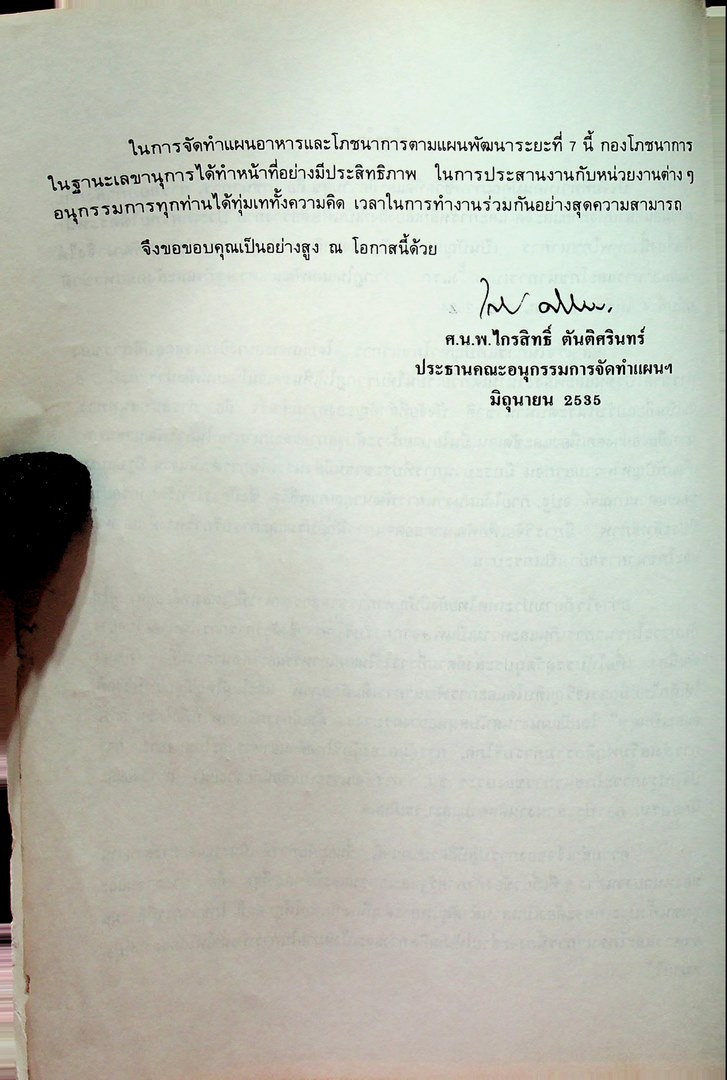 ในการจัดทำแผนอาหารและโภชนาการตามแผนพัฒนาระยะที่ 7 นี้ กองโภชนาการ
ในฐานะเลขานุการได้ทำหน้าที่อย่างมีประสิทธิภาพ ในการประสานงานกับหน่วยงานต่างๆ
อนุกรรมการทุกท่านได้ทุ่มเททั้งความคิด เวลาในการทำงานร่วมกันอย่างสุดความสามารถ
จึงขอขอบคุณเป็นอย่างสูง ณ โอกาสนี้ด้วย
ศ.น.พ.ไกรสิทธิ์ ตันติศรินทร์
ประธานคณะอนุกรรมการจัดทำแผนฯ
มิถุนายน 2535